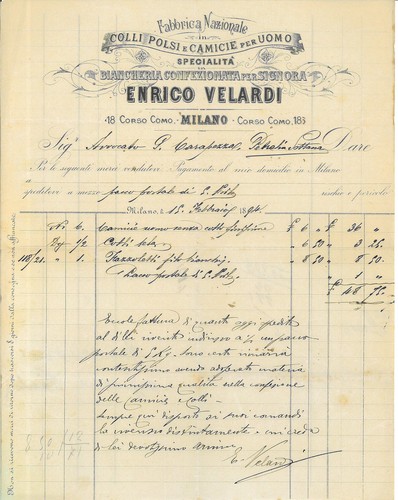 Fabbrica Nazionale
in
COLLI POLSI E CAMICIE PER UOMO
SPECIALITÀ
in
BIANCHERIA CONFEZIONATA PER SIGNORA
ENRICO VELARDI
18 CORSO COMO, MILANO CORSO COMO, 18
Sigr Avvocato Dare
Per le seguenti merci vendutevi. Pagamento al mio domicilio in Milano
e speditevi a mezzo pacco postale di rischio e pericolo
Milano, li 15 Febbraio 1894
No. 6. Camicie uomo senza colli £ 6 " 36 "
1/2 Colli tela " 6 50 " 3 25
" 1. Fazzoletti filo bianchi " 8 50 " 8 50
Pacco postale di " 1 "
£ 48 75
Eccole fattura di quanto oggi spedito
al di Lei indirizzo a 1/2 un pacco
postale di Sono certo rimarrà
contentissimo avendo materia
di primissima qualità nella confezione
delle camicie e colli.
Sempre qui disposto ai suoi comandi
la riverisco distintamente e mi creda
di lei devotissimo
E. Velardi